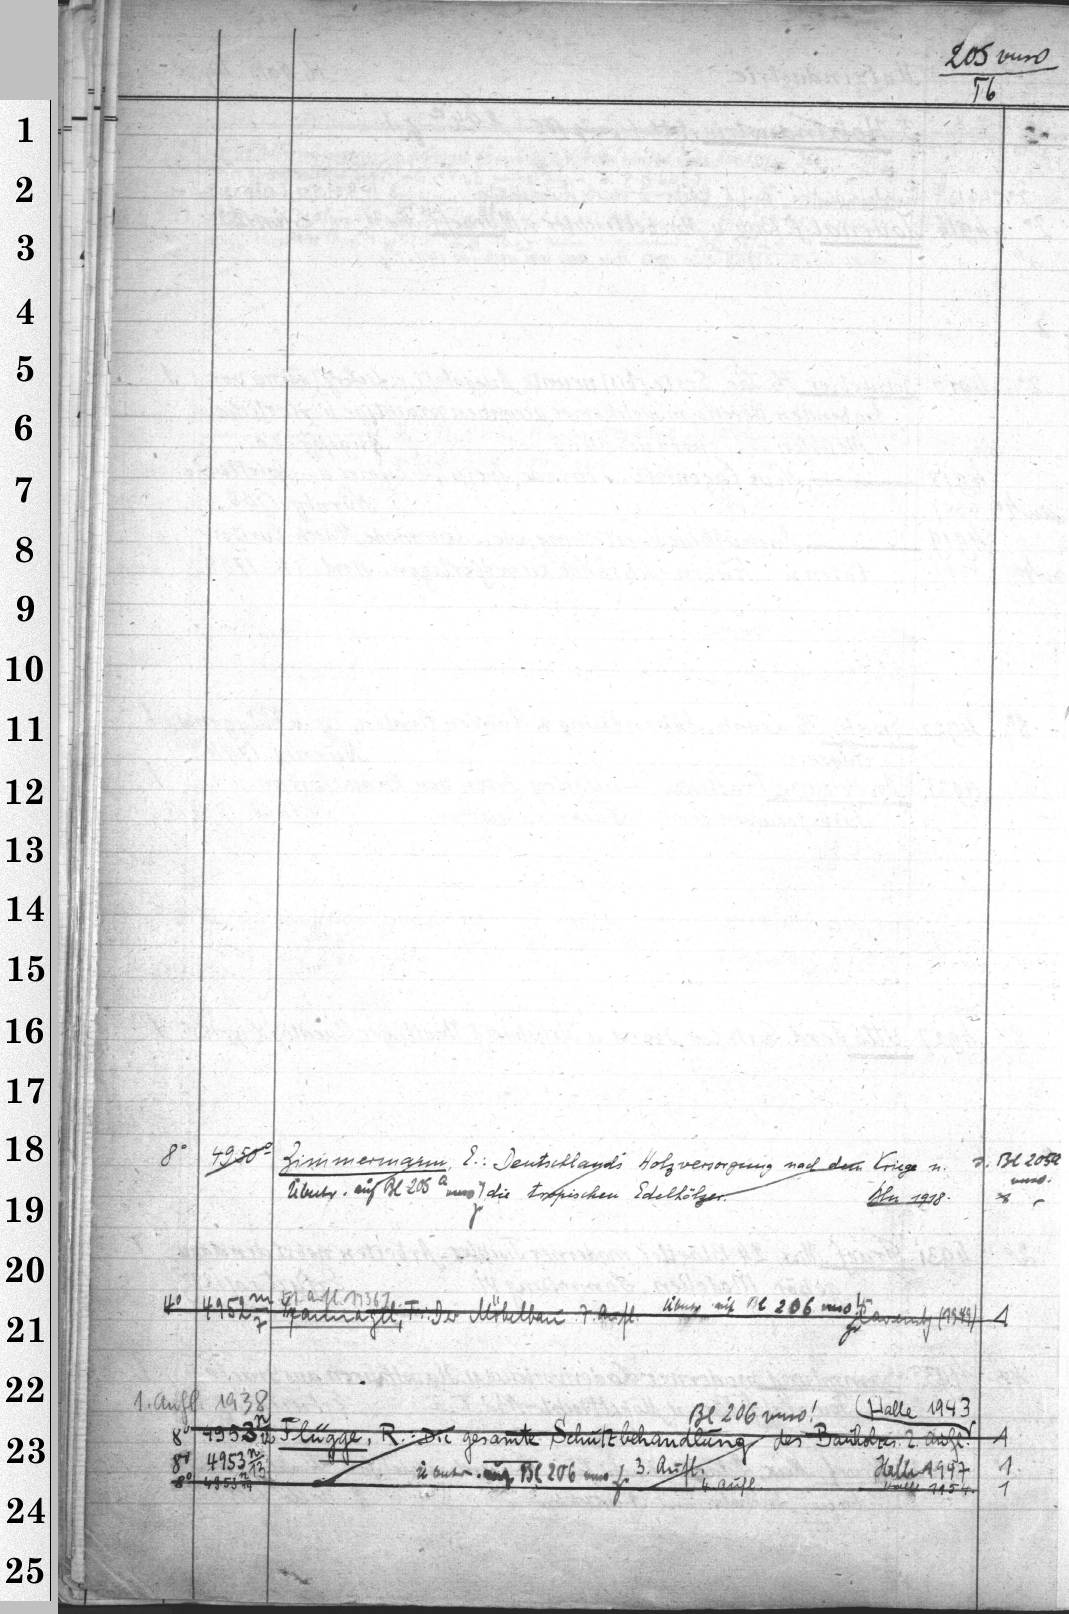 205 verso
Tb
1
2
3
4
5
6
7
8
9
10
11
12
13
14
15
16
17
18
8° 4950 Zimmermann, E.: Deutschlands Holzversorgung nach dem Kriege u. s. Bl 205a verso.
Übertr. auf Bl 205a verso die tropischen Edelhölzer. Bln 1918.
19
20
4° 4952 m/7 Spannagel, Fr.: Der Möbelbau 7. Aufl. Übertr. auf Bl 206 verso! Ravensb (1949) 1
21
22
1. Aufl. 1938 Bl 206 verso! (Halle 1943
8° 4953 n/12 Flügge, R.: Die gesamte Schutzbehandlung des Bauholzes. 2. Aufl. 1
23
8° 4953 n/13 Übertr. auf Bl 206 verso 3. Aufl. Halle 1947 1
8° 4953 n/14 4. Aufl. Halle 1954. 1
24
25